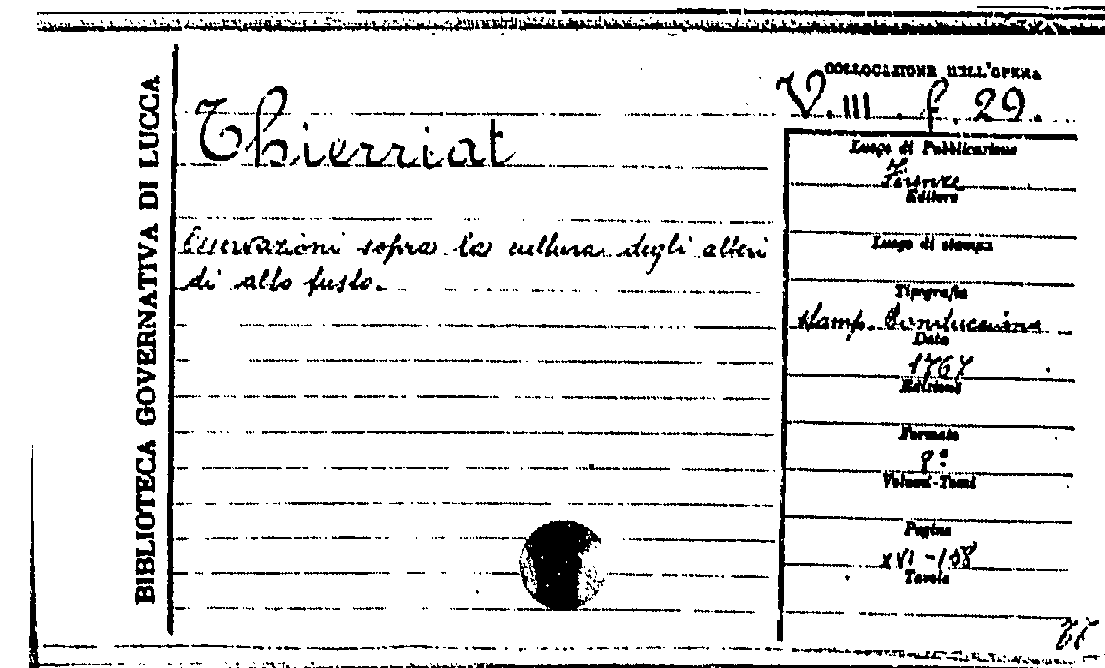 BIBLIOTECA GOVERNATIVA DI LUCCA
COLLOCAZIONE DELL'OPERA
V. III. f. 29.
Thierriat
Osservazioni sopra la cultura degli alberi
di alto fusto.
Luogo di Pubblicazione
Firenze
Editore
Luogo di stampa
Tipografia
Stamp. Bonducciana
Data
1767
Edizioni
Formato
8º
Volumi-Tomi
Pagine
XVI-158
Tavole